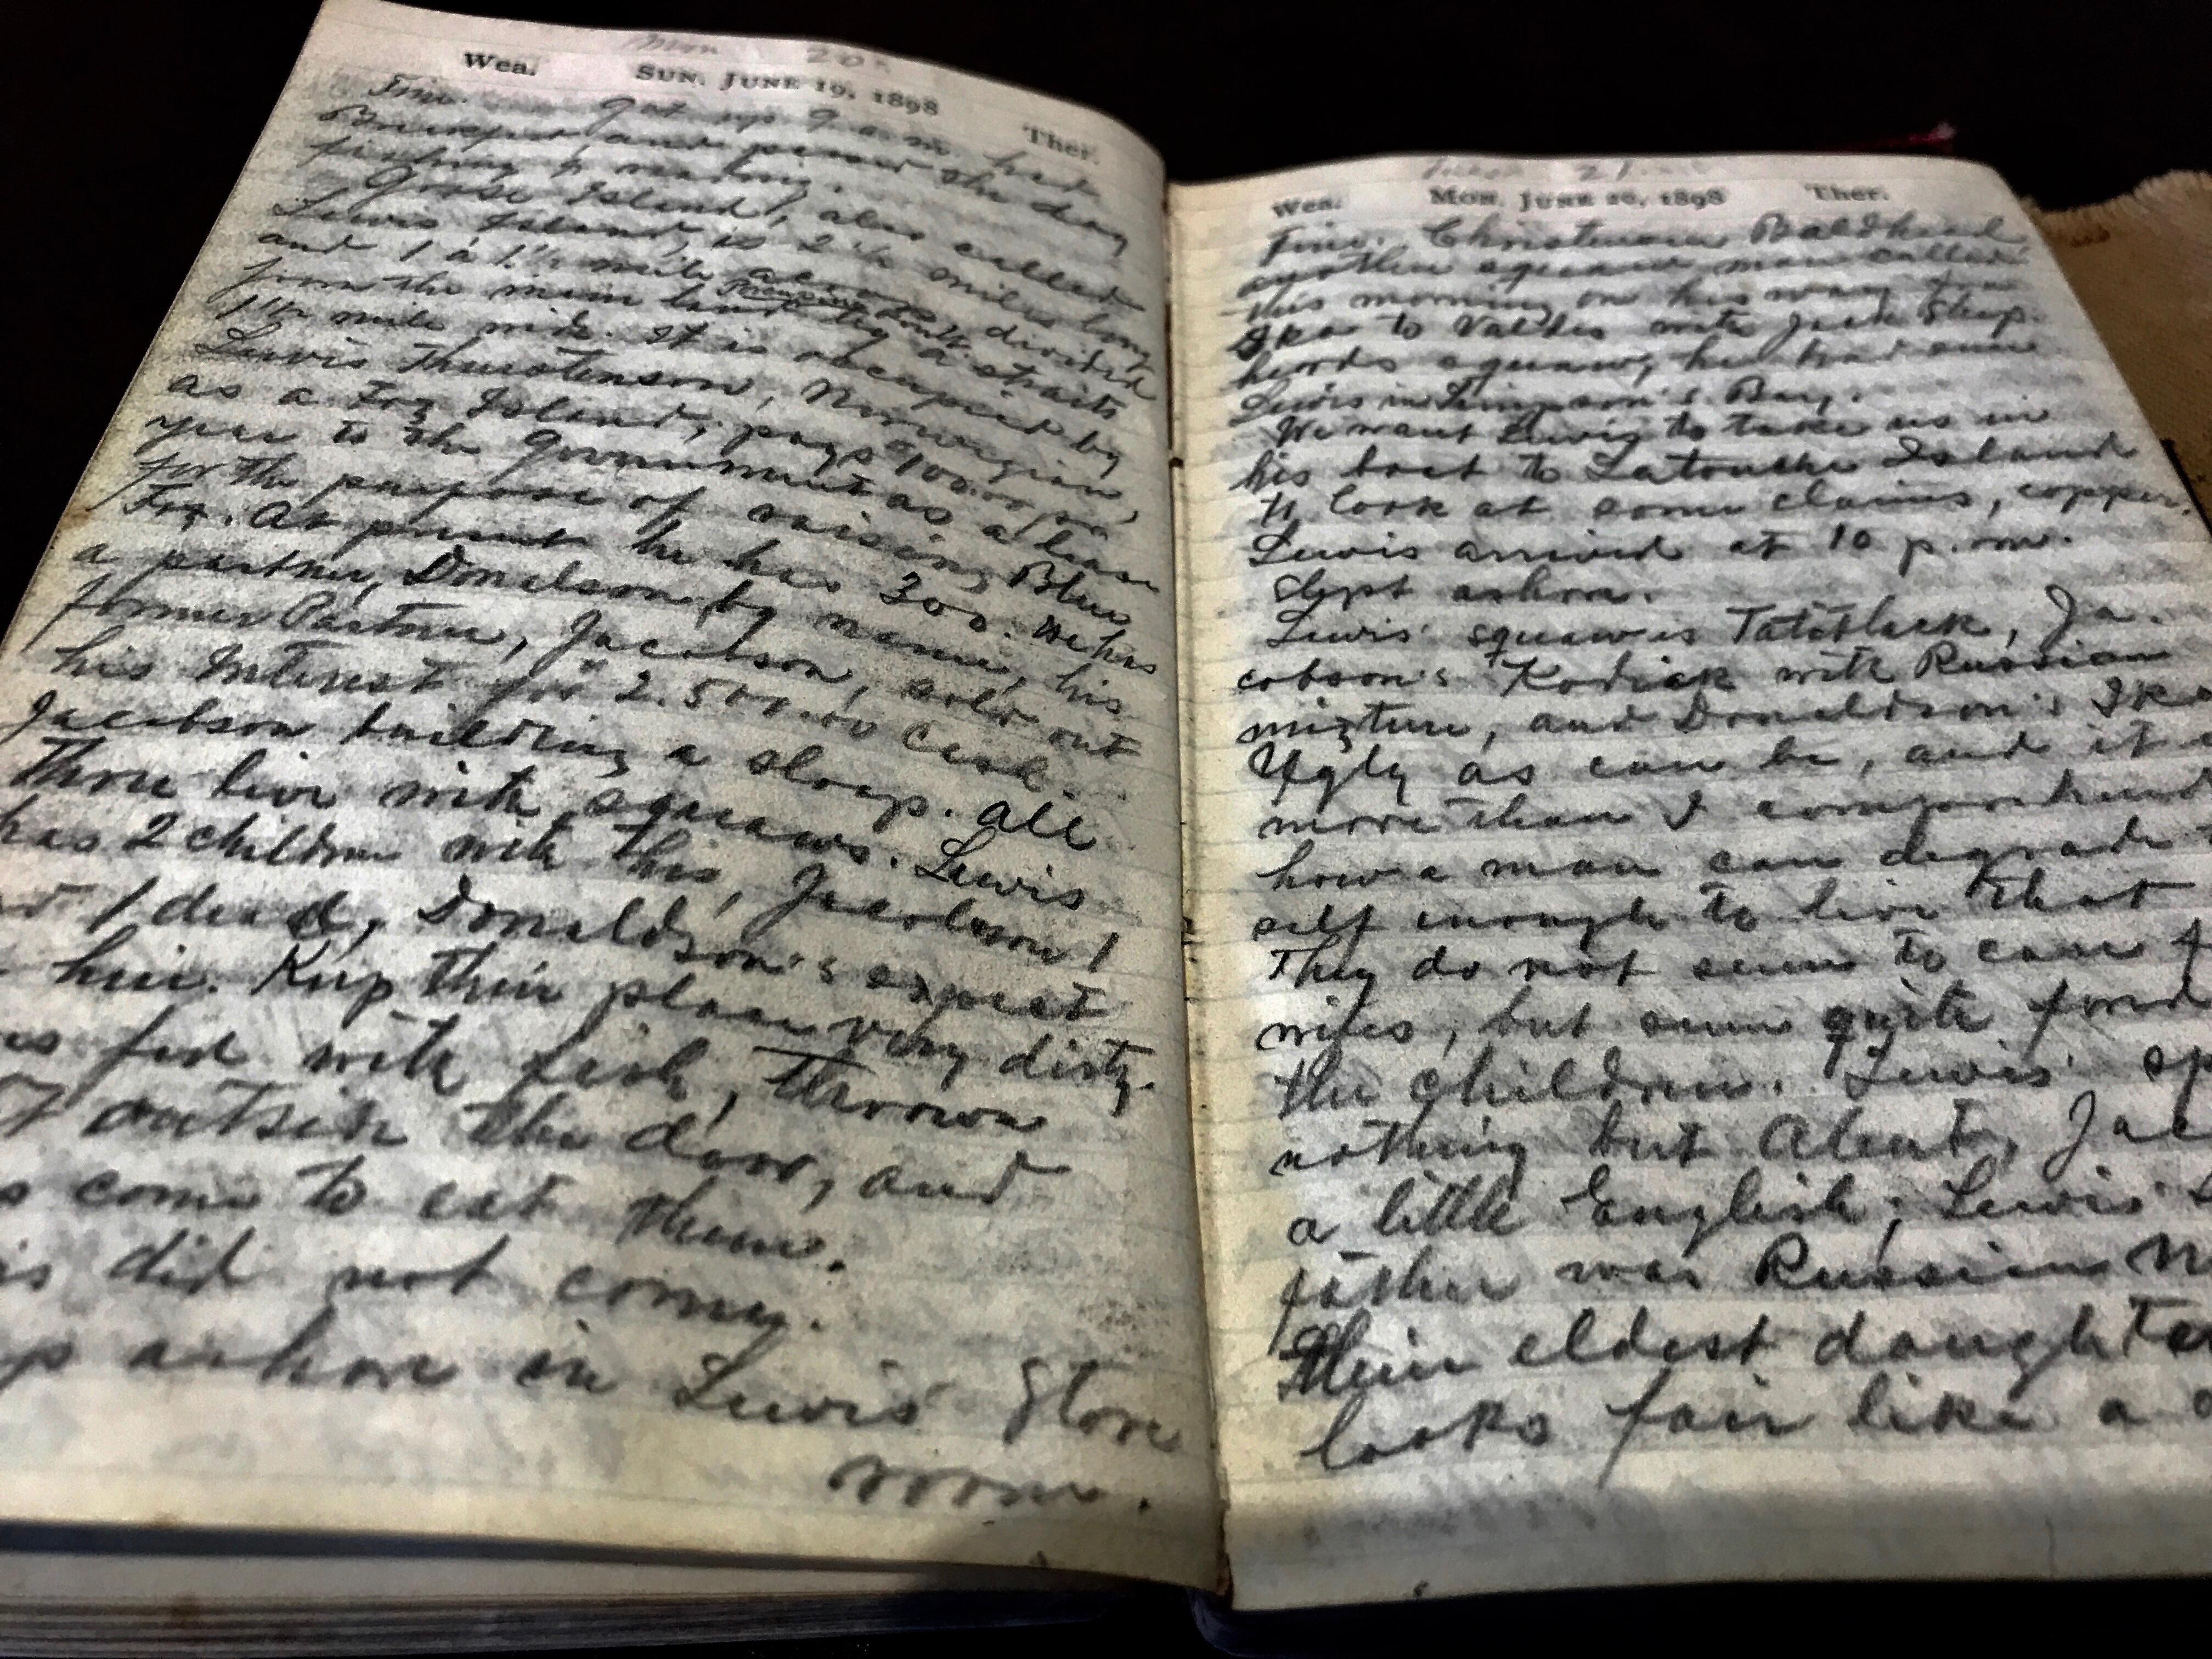 Mon 20.
Wea. SUN. JUNE 19, 1898 Ther.
Fine. Got up 9 a.m. had
Breakfast and passed the day
fishing & reading.
Goose Island, also called
Lewis Island, is 2½ miles long
and 1 à 1½ mile across, divided
from the main land by a straits
1½ mile wide. It is occupied by
Lewis Thurstenson, Norwegian,
as a Fox Island, pays $100.00 per
year to the Government as a lease
for the purpose of raising Blue
Fox. At present he has 300. He has
a partner, Donelson by name, his
former Partner, Jacobson, sold out
his Interest for $2.500.00 Cash.
Jacobson building a sloop. All
Three live with squaws. Lewis
has 2 children with this, Jacobson 1
1 dead, Donaldson's expect
hui. Kup their place very dirty.
fed with fish, thrown
outside the door, and
come to eat them.
did not come.
ashore in Lewis' Store
room.
21.
Wea. MON. JUNE 20, 1898 Ther.
Fine. Christensen Baldhead
another squaw man called
this morning on his way from
Ika to Valdes with Jack Shep-
herds squaw, he had seen
Lewis in Simpson's Bay.
We want Lewis to take us in
his boat to Latouche Island
to look at some claims, copper.
Lewis arrived at 10 p.m.
Slept ashore.
Lewis' squaw is Tatitlack, Ja-
cobson's Kodiak with Russian
mixture, and Donaldson's Ika
Ugly as can be, and it
more than I comprehend
how a man can degrade
self enough to live that
They do not seem to care
wifes, but seem quite fond
the children. Lewis'
nothing but Aleut,
a little English; Lewis'
father was Russian
Their eldest daughter
looks fair like a